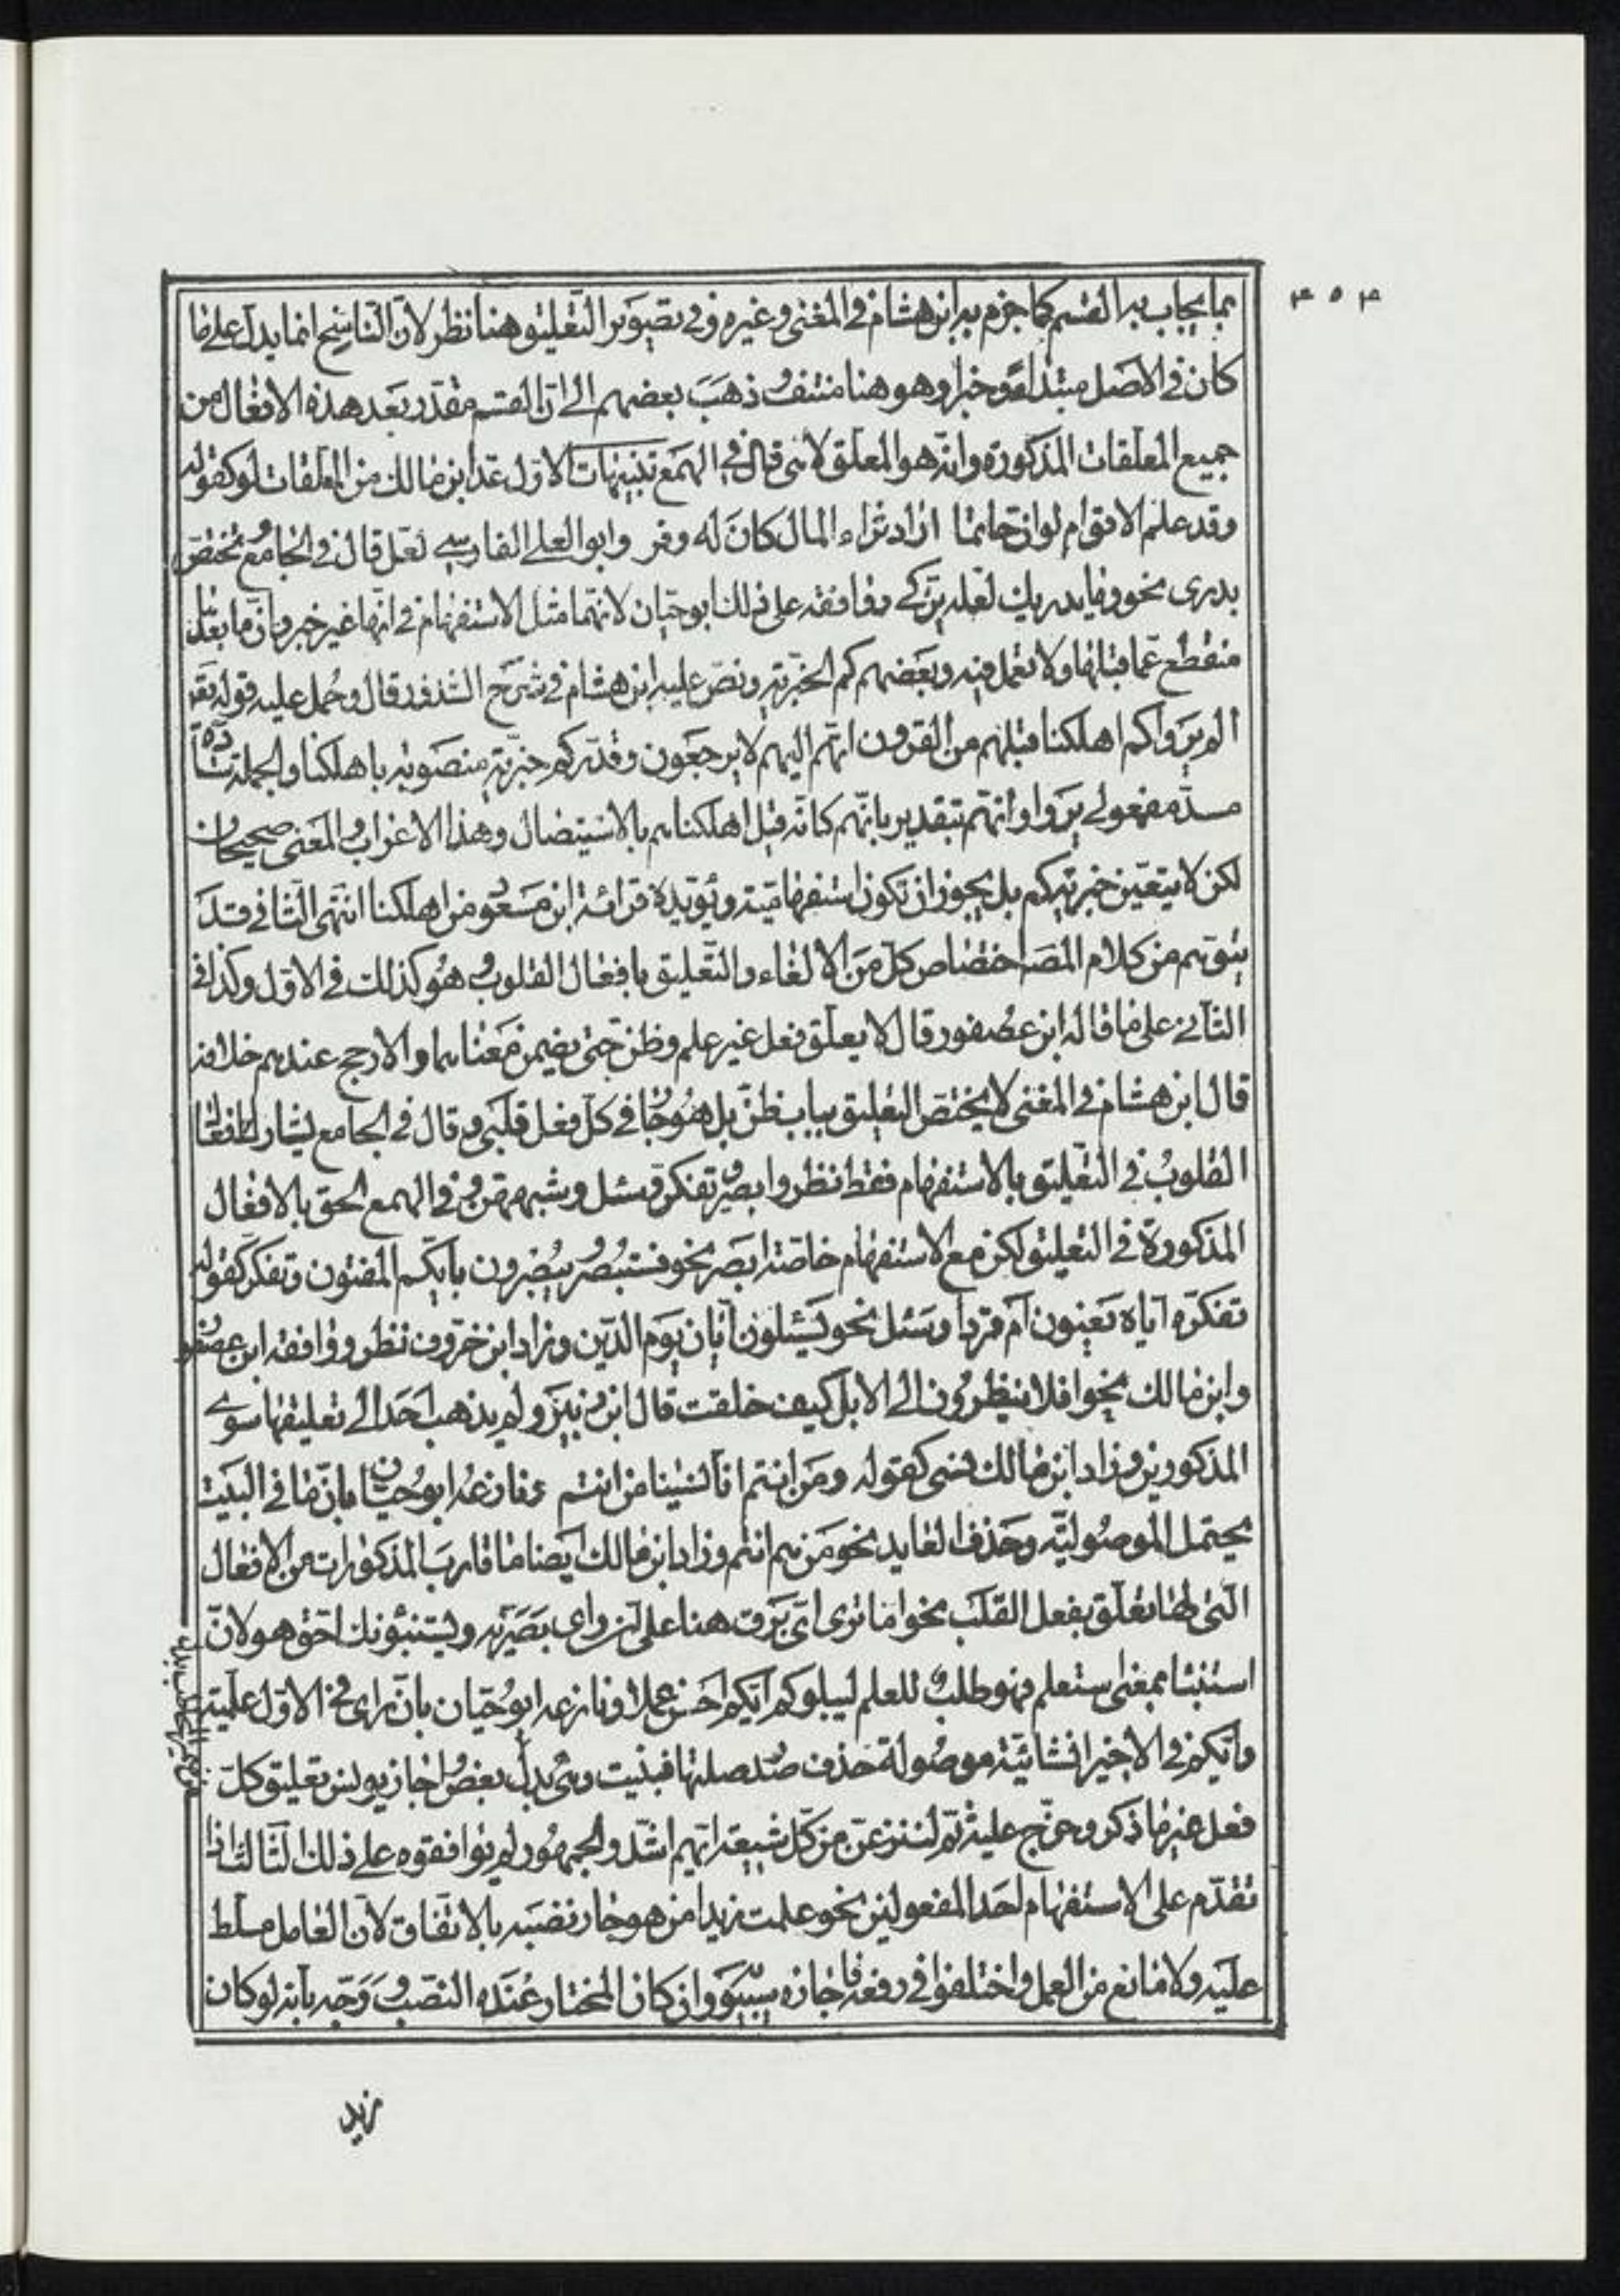 بما يجاب به القسم كما جزم به ابن هشام في المغنى وغيره وفي تصوير التعليق هنا نظر لان الناسخ انما يدل على ما
كان في الاصل مبتداء وخبرا وهو هنا منتف وذهب بعضهم الى ان القسم مقدر بعد هذه الافعال من
جميع المعلقات المذكورة وانه هو المعلق لانى قال في الهمع تنبيهات الاول عد ابن مالك من المعلقات لو كقوله
وقد علم الاقوام لو ان حاتما اراد ثراء المال كان له وفر وابو العلى الفارسى لعل قال في الجامع مختص
بدرى نحو وما يدريك لعله يزكى ووافقه على ذلك ابو حيان لانهما مثل الاستفهام في انها غير خبر وان ما بعد
منقطع عما قبلها ولا تعمل فيه وبعضهم كم الخبرية ونص عليه ابن هشام في شرح الشذور قال وحمل عليه قوله تع
الم يروا كم اهلكنا قبلهم من القرون انهم اليهم لا يرجعون وقدر كم خبرية منصوبة باهلكنا والجملة سادة
مسد مفعولى يروا وانهم بتقدير بانهم كانه قيل اهلكناهم بالاستيصال وهذا الاعراب والمعنى صحيحان
لكن لا يتعين خبرية كم بل يجوز ان تكون استفهامية ويؤيده قرائة ابن مسعود من اهلكنا انتهى الثانى قد
يتوهم من كلام المصـ اختصاص كل من الالغاء والتعليق بافعال القلوب وهو كذلك في الاول وكذا في
الثانى على ما قاله ابن عصفور قال لا يعلق فعل غير علم وظن حتى يضمن معناهما والارجح عندهم خلافه
قال ابن هشام في المغنى لا يختص التعليق بباب ظن بل هو جار في كل فعل قلبى وقال في الجامع يشارك افعال
القلوب في التعليق بالاستفهام فقط نظر وابصر وتفكر وسئل وشبههن وفي الهمع الحق بالافعال
المذكورة في التعليق لكن مع الاستفهام خاصة ابصر نحو فستبصر ويبصرون بايكم المفتون وتفكر كقوله
تفكر آاياه تعنون ام قردا وسئل نحو يسئلون ايان يوم الدين وزاد ابن خروف نظر ووافقه ابن عصفور
وابن مالك نحو افلا ينظرون الى الابل كيف خلقت قال ابن الزبير ولم يذهب احد الى تعليقها سوى
المذكورين وزاد ابن مالك نسى كقوله ومن انتم انا نسينا من انتم ونازعه ابو حيان بان ما في البيت
يحتمل الموصولية وحذف العايد نحو من هم انتم وزاد ابن مالك ايضا ما قارب المذكورات من الافعال
التى لها تعلق بفعل القلب نحو اما ترى اى برق هنا على ان راى بصرية ويستنبؤنك احق هو لان
استنبا بمعنى استعلم فهو طلب للعلم ليبلوكم ايكم احسن عملا ونازعه ابو حيان بان راى في الاول علمية
وايكم في الاخير انشائية موصولة حذف صدر صلتها فبنيت وهى بدل بعض واجاز يونس تعليق كل
فعل غير ما ذكر وخرج عليه ثم لننزعن من كل شيعة ايهم اشد والجمهور لم يوافقوه على ذلك الثالث اذا
تقدم على الاستفهام احد المفعولين نحو علمت زيدا من هو جاز نصبه بالاتفاق لان العامل مسلط
عليه ولا مانع من العمل واختلفوا في رفعه فاجازه سيبويه وان كان المختار عنده النصب ووجه بانه لو كان
زيد